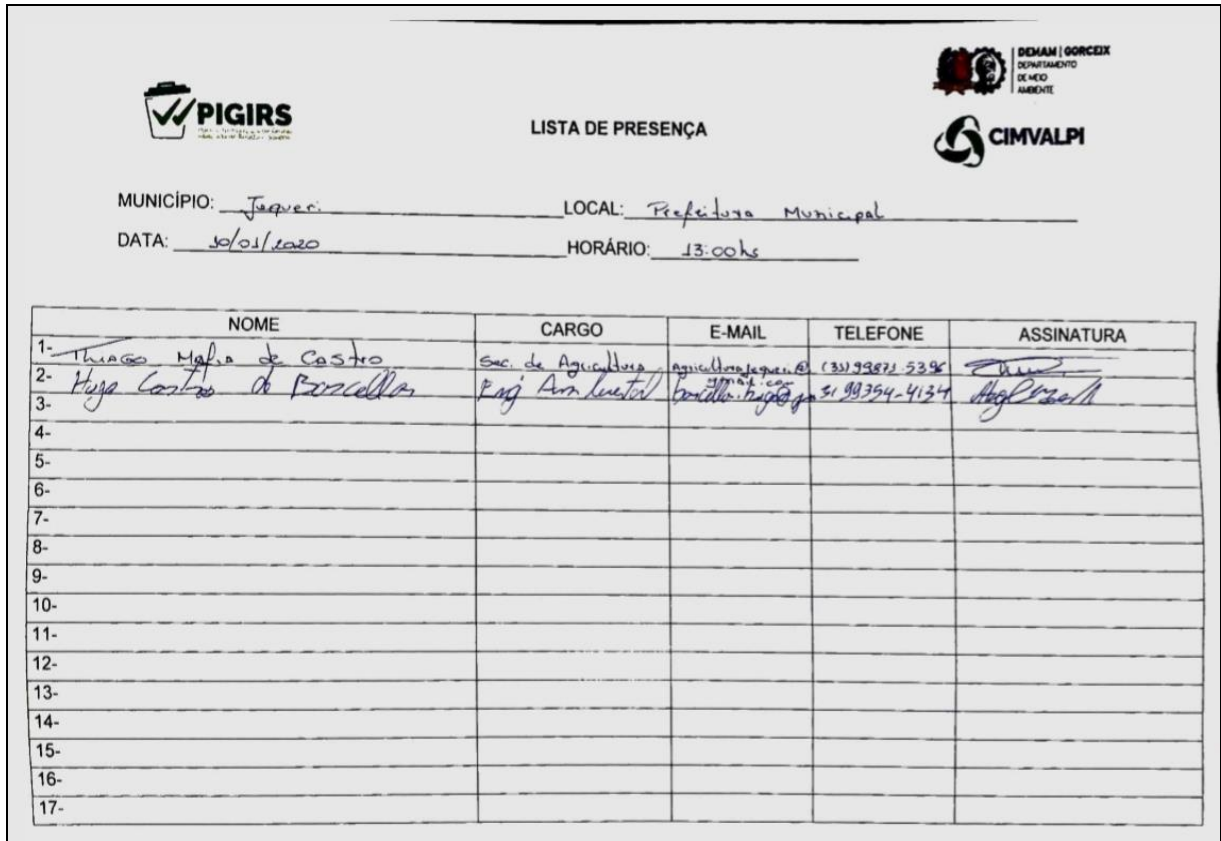 DEMAM | GORCEIX
DEPARTAMENTO
DE MEIO
AMBIENTE
PIGIRS
LISTA DE PRESENÇA
CIMVALPI
MUNICÍPIO: Jequeri LOCAL: Prefeitura Municipal
DATA: 30/01/2020 HORÁRIO: 13:00hs
NOME CARGO E-MAIL TELEFONE ASSINATURA
1- THIAGO Mafia de Castro Sec. de Agricultura agriculturajequeri@gmail.com (31) 99871-5396
2- Hugo Castro de Barcellos Eng Ambiental 31 99354-4134
3-
4-
5-
6-
7-
8-
9-
10-
11-
12-
13-
14-
15-
16-
17-